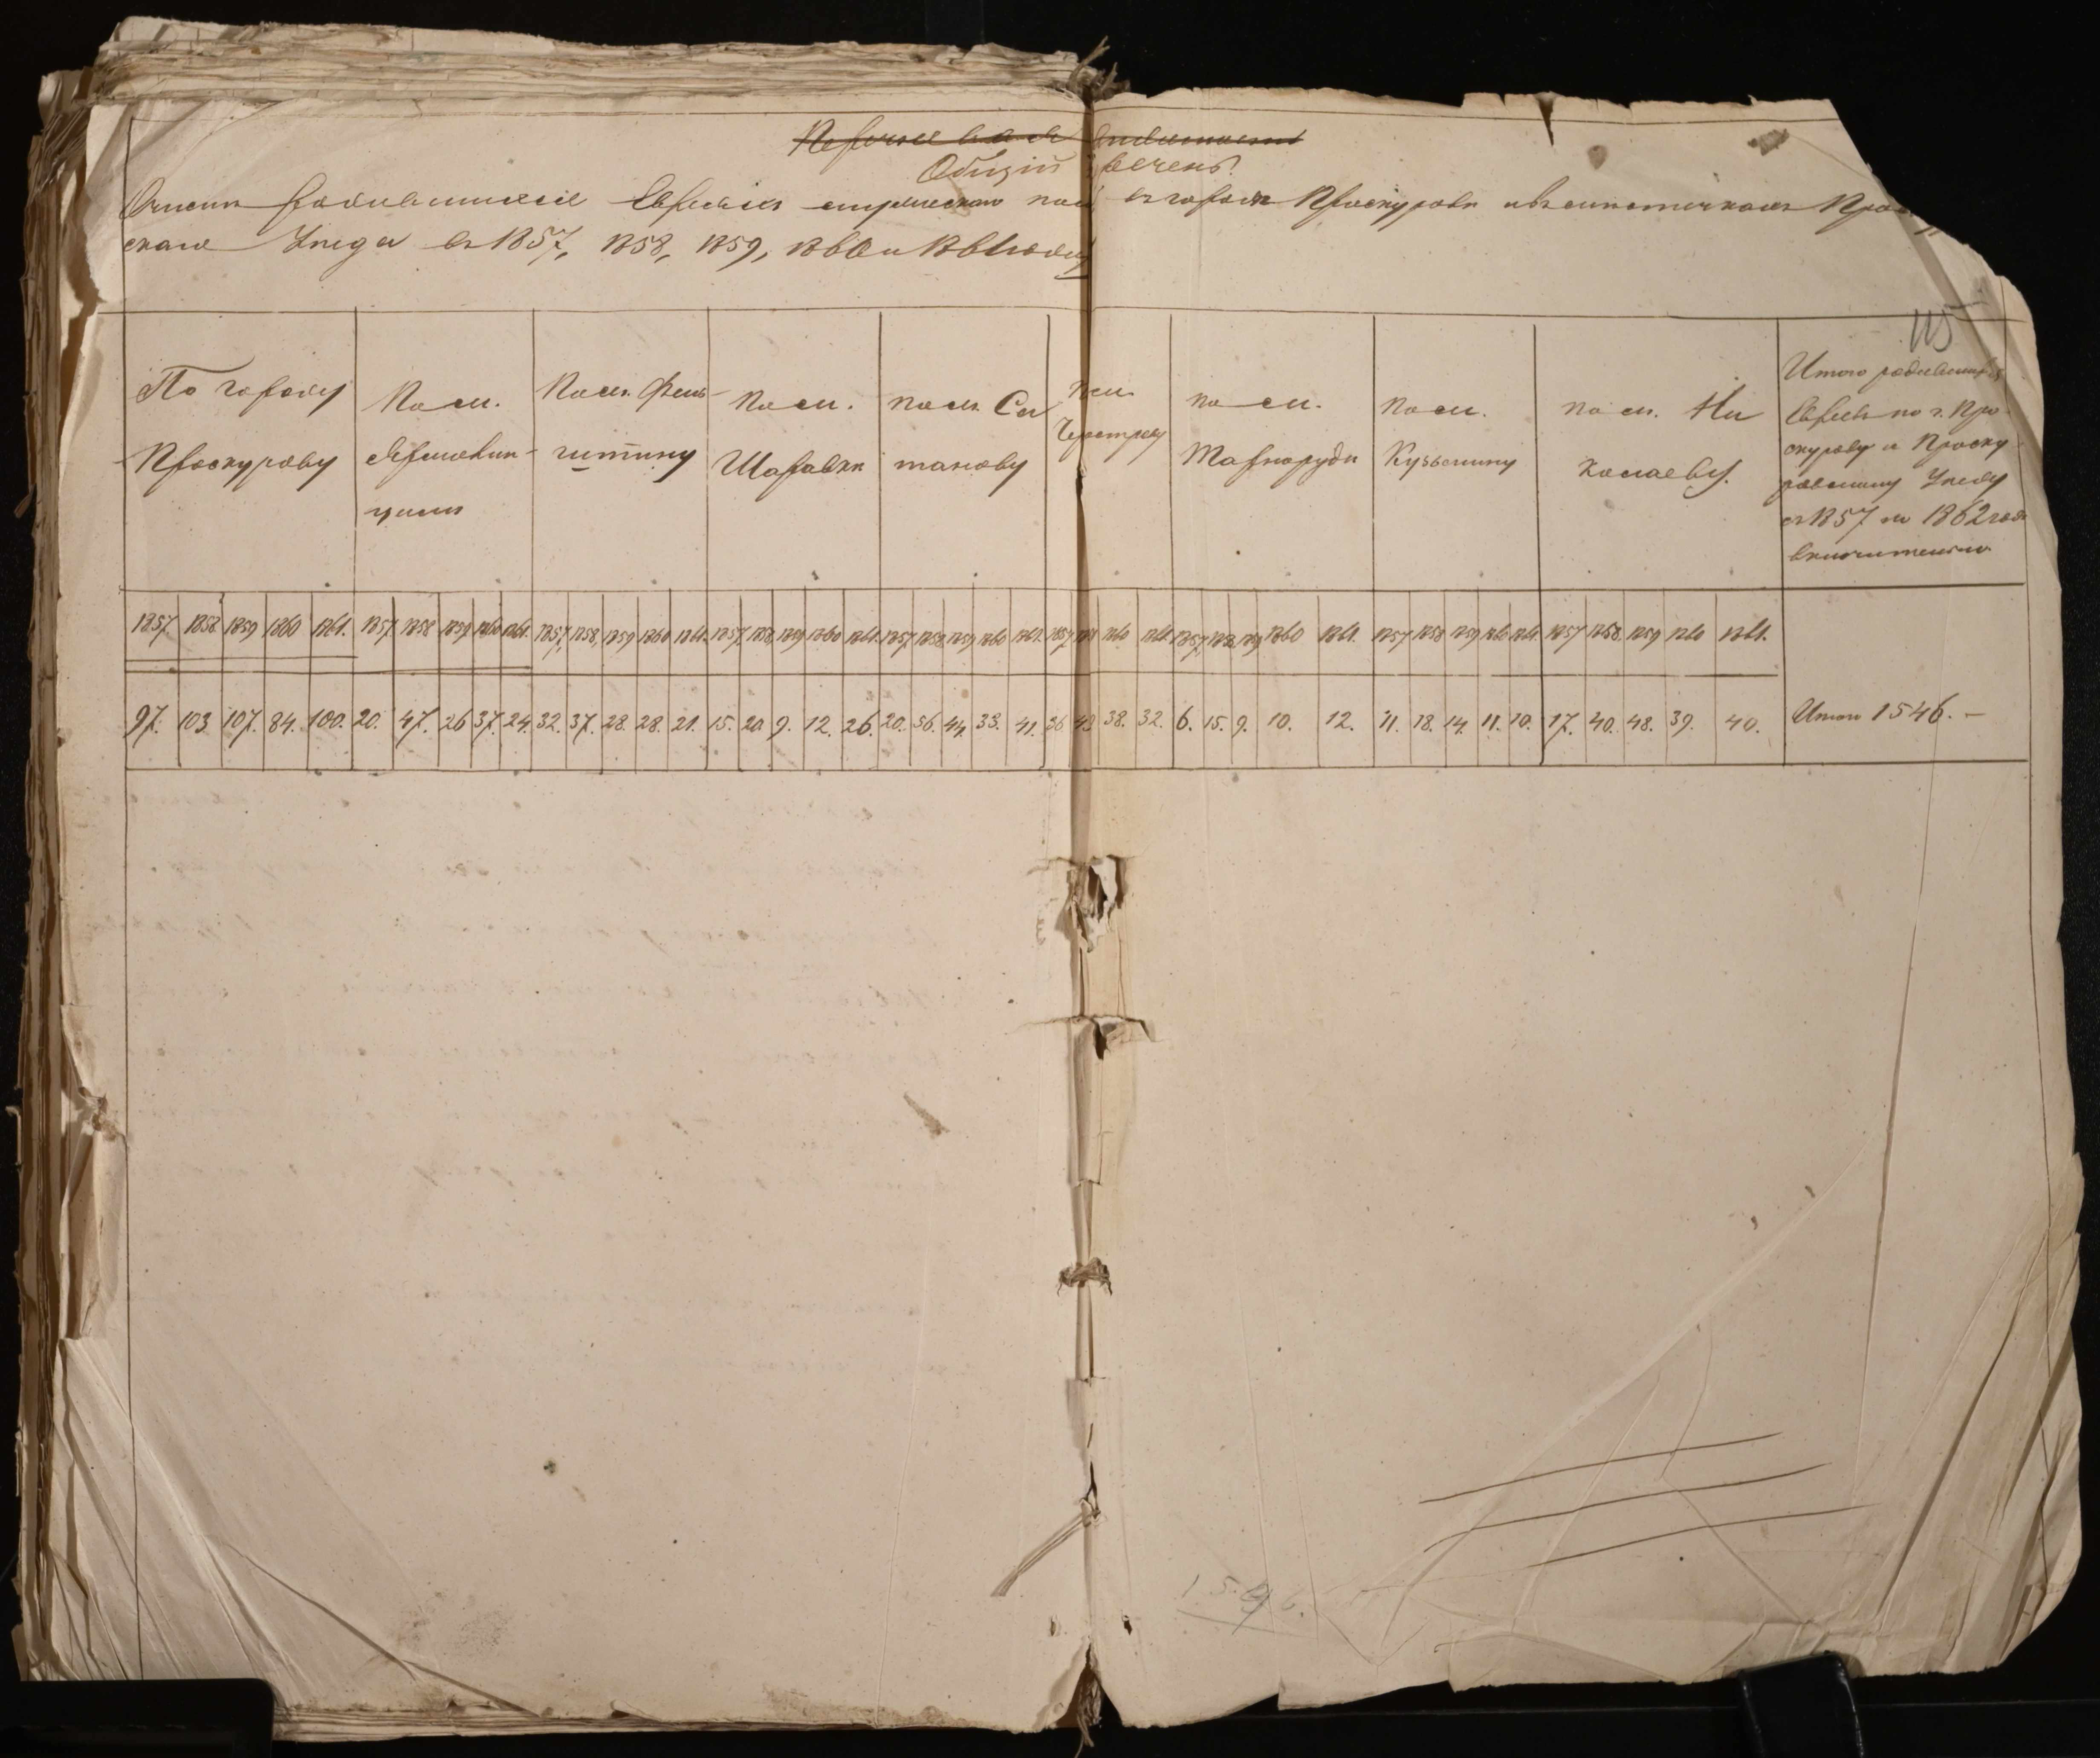 Общій [пе]речень
О числѣ родившихся Евреевъ мужескаго пола въ городѣ Проскуровѣ и въ мѣстечкахъ Прос
скаго Уезда въ 1857, 1858, 1859, 1860 и 1861 годах
115
По городу Проскурову
По м.
По м. Фель-
штину
По м. Шаравки
по м. Са
танову
по м. Черноострову
по м. Тарноруди
по м. Кузьмину
по м. Ни
колаеву.
Итого родившихся
Евреевъ по г. Про
скурову и Проску
ровскому Уезду
съ 1857 по 1862 годъ
включительно
1857 1858 1859 1860 1861. 1857 1858 1859 1860 1861. 1857, 1858, 1859 1860 1861. 1857, 1858 1859 1860 1861. 1857 1858 1859 1860 1861. 1857 1858 1860 1861. 1857, 1858 1859 1860 1861. 1857 1858 1859 1860 1861. 1857 1858. 1859 1860 1861.
97. 103 107. 84. 100. 20. 47. 26 37. 24. 32. 37. 28. 28. 21. 15. 20 9. 12. 26. 20. 36. 44. 33. 41. 36 43 38. 32. 6. 15. 9. 10. 12. 11. 18. 14. 11. 10. 17. 40. 48. 39. 40. Итого 1546. —